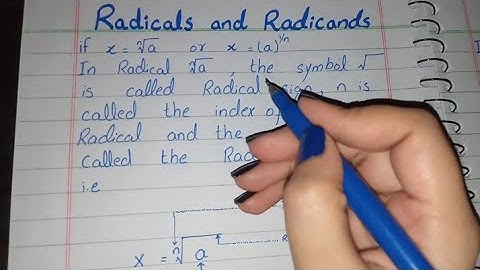 Radicals and Radicands
if x = ⁿ√a or x = (a)^1/n
In Radical ⁿ√a, the symbol √
is called Radical sign, n is
called the index of
Radical and the
called the Rad
i.e
x = ⁿ√a